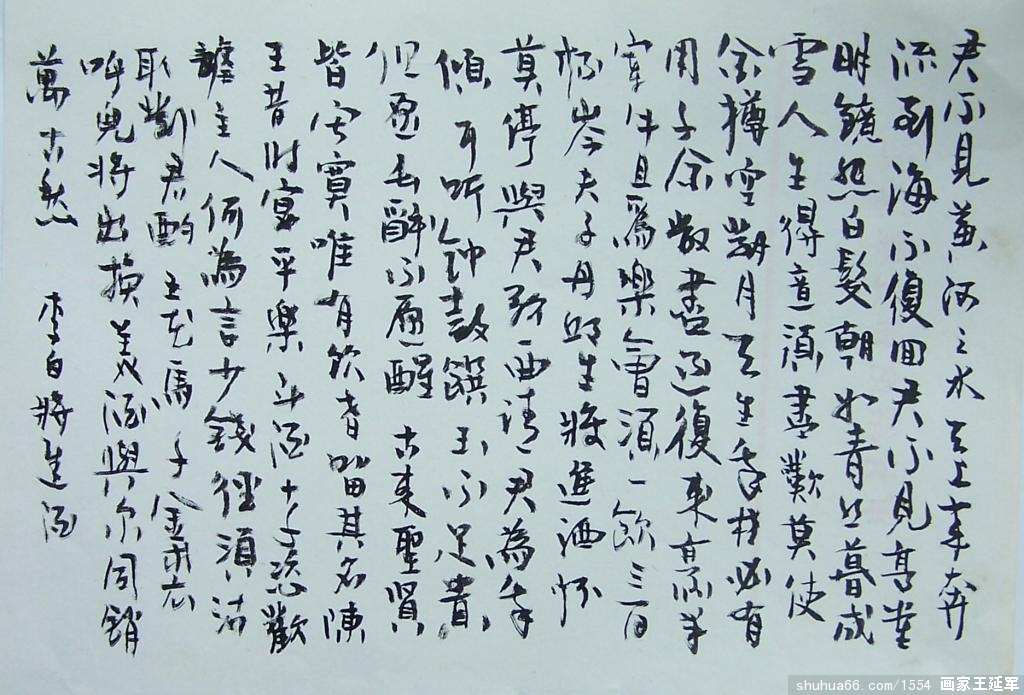 君不見黃河之水天上來奔
流到海不復回君不見高堂
明鏡悲白髮朝如青絲暮成
雪人生得意須盡歡莫使
金樽空對月天生我材必有
用千金散盡還復來烹羊
宰牛且爲樂會須一飲三百
杯岑夫子丹邱生將進酒杯
莫停與君歌一曲請君為我
傾耳听鐘鼓饌玉不足貴
但愿長醉不愿醒 古來聖賢
皆寂寞唯有飲者留其名陳
王昔时宴平樂斗酒十千恣歡
謔主人何為言少錢徑須沽
取對君酌 五花馬千金裘
呼兒將出換美酒與尔同銷
萬古愁 李白將進酒
shuhua66.com/1554 画家王延军